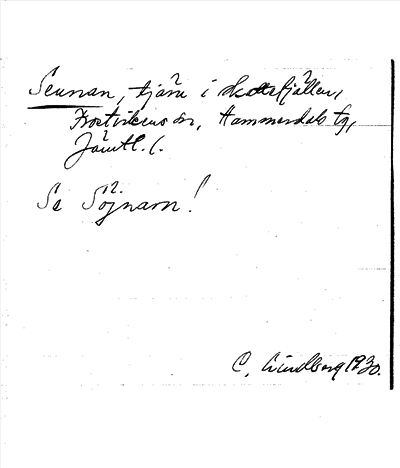 Seunan, tjärn i Skottsfjällen,
Frostvikens sn, Hammerdals tg,
Jämtl. l.
Se Sögnarn!
C. Lindberg 1930.